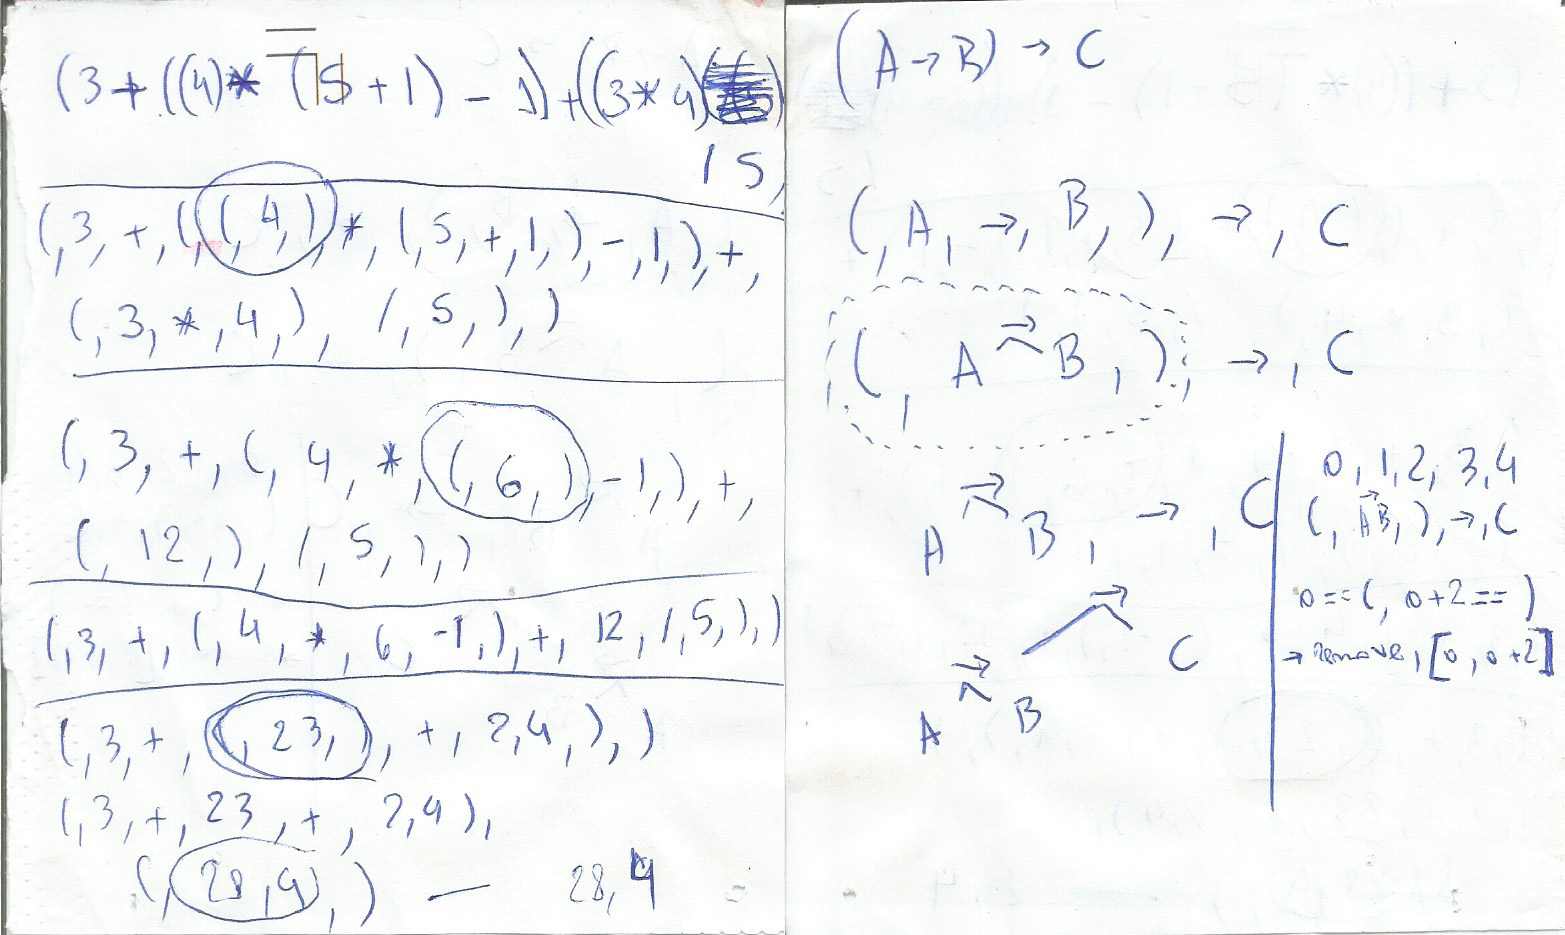 (3 + ((4)* (5 + 1) - 1) + ((3*4)
/ 5)
(,3,+,(,(,4,),*,(,5,+,1,),-,1,),+,
(,3,*,4,), /,5,),)
(,3,+,(,4,*,(,6,),-1,),+,
(,12,),/,5,),)
(,3,+,(,4,*,6,-1,),+,12,/,5,),)
(,3,+,(,23,),+,2,4,),)
(,3,+,23,+,2,4),
(,28,4,) — 28,4
(A→B)→C
(,A,→,B,),→,C
(,A→B,),→,C
A→B,→,C
→
C
→
A B
0,1,2,3,4
(,A→B,),→,C
0==(, 0+2==)
→remove,[0,0+2]